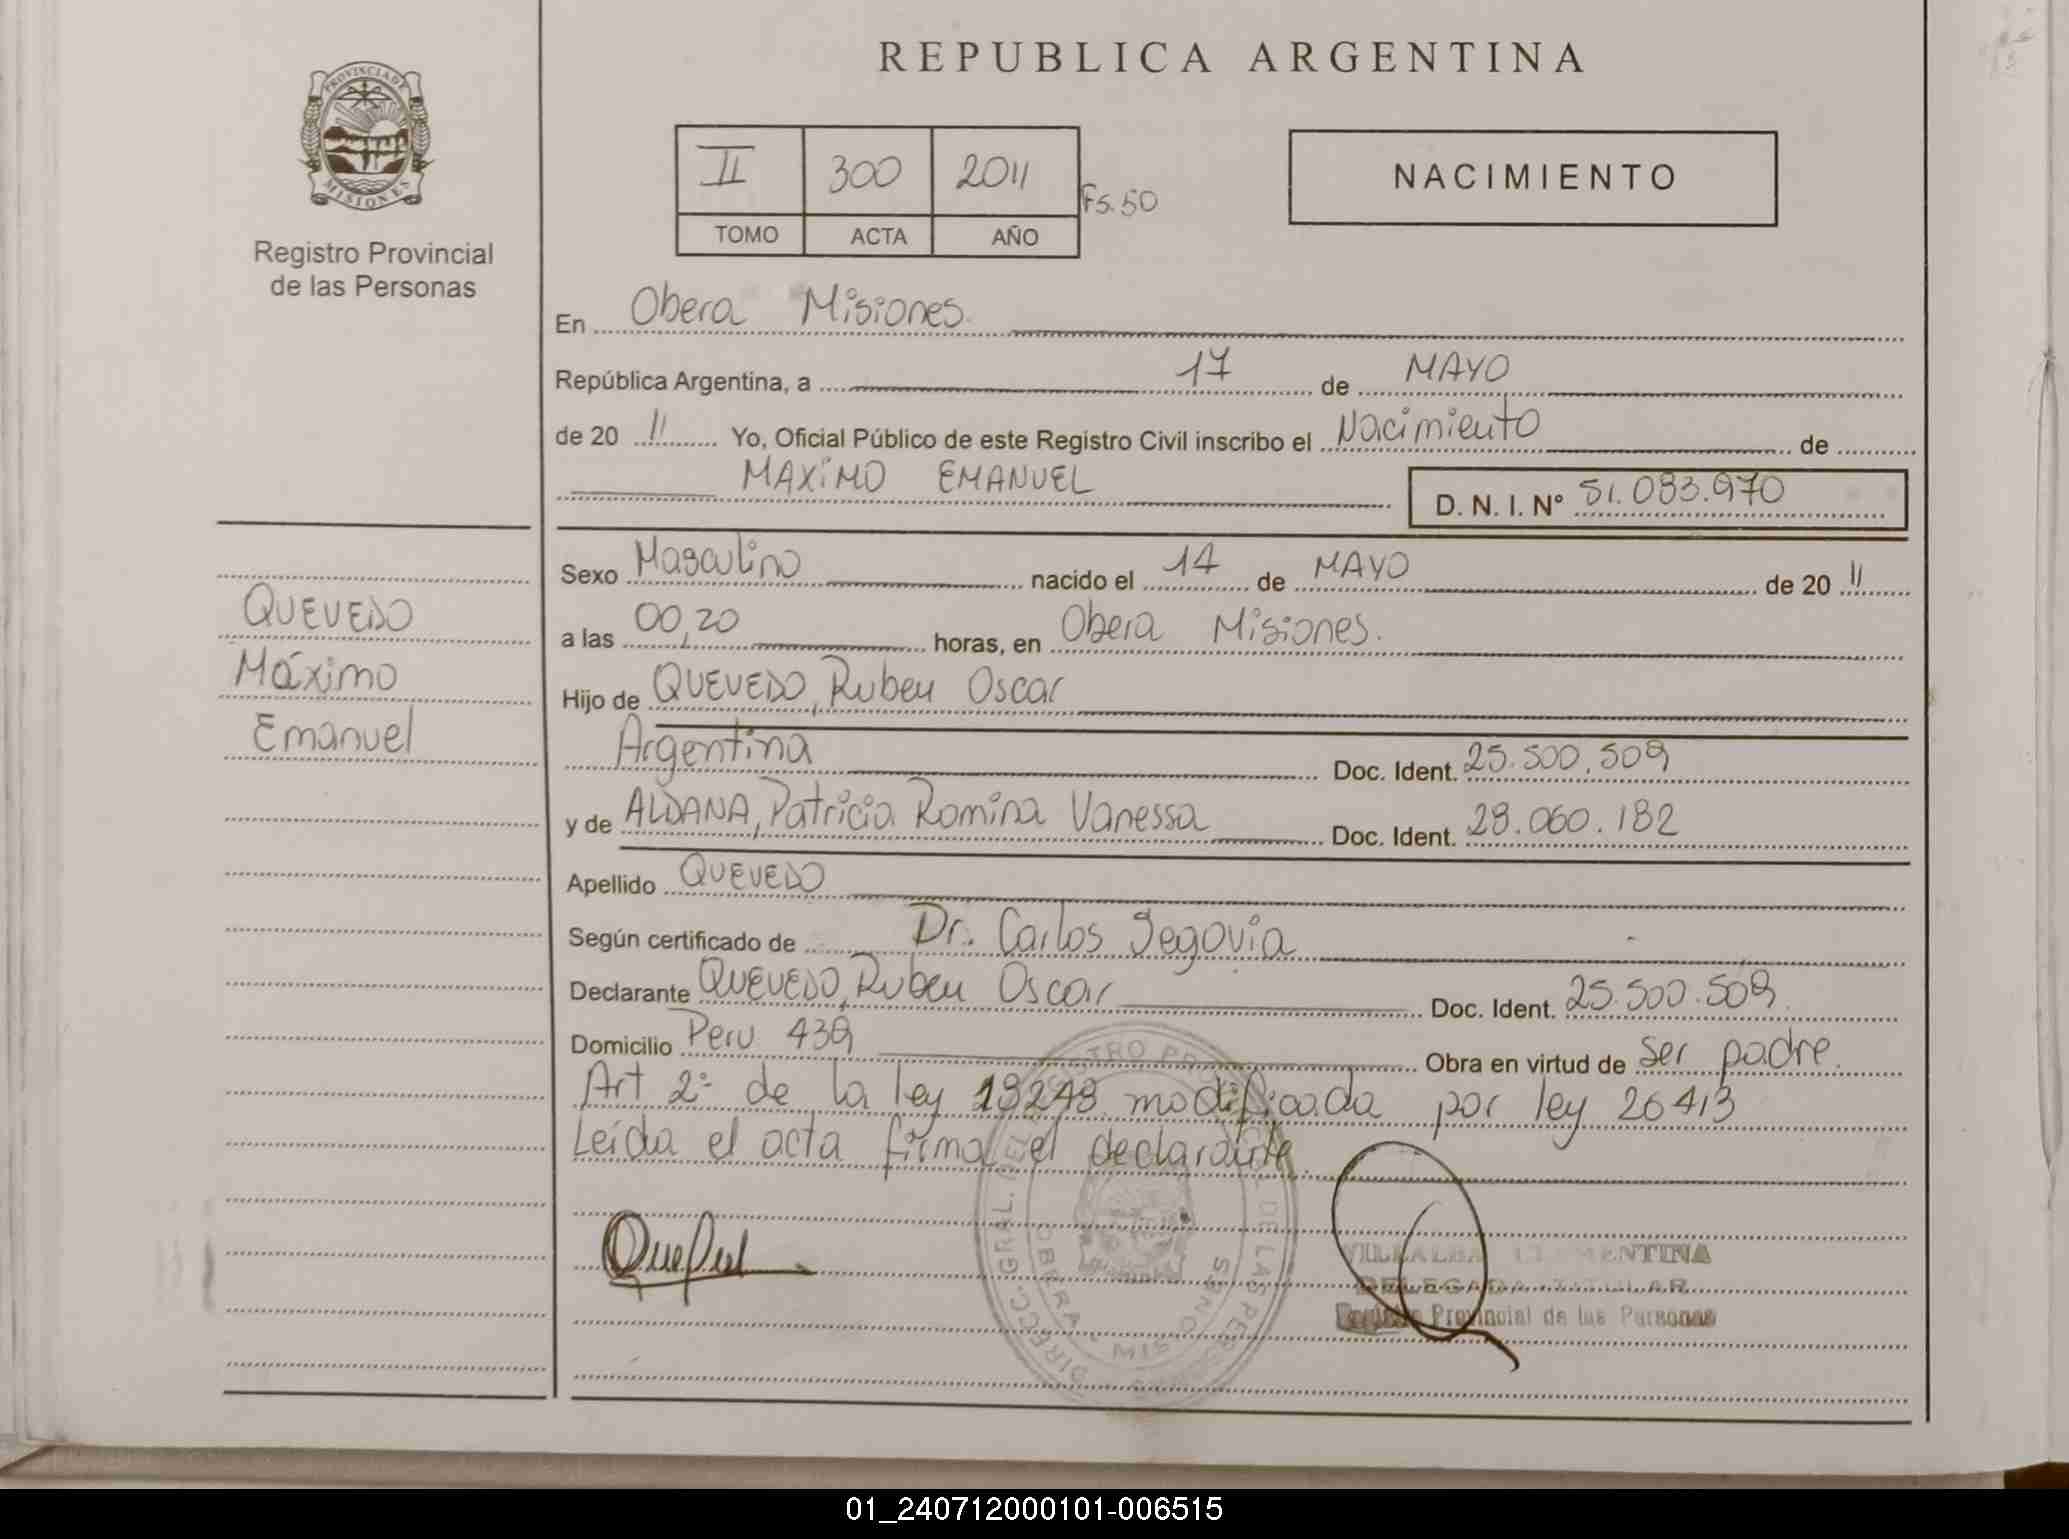 REPUBLICA ARGENTINA
PROVINCIA DE MISIONES
Registro Provincial
de las Personas
II 300 2011 Fs. 50
TOMO ACTA AÑO
NACIMIENTO
En Obera Misiones
República Argentina, a 17 de MAYO
de 20 11 Yo, Oficial Público de este Registro Civil inscribo el Nacimiento de
MAXIMO EMANUEL D. N. I. Nº 51.083.970
QUEVEDO
Máximo
Emanuel
Sexo Masculino nacido el 14 de MAYO de 20 11
a las 00,20 horas, en Obera Misiones.
Hijo de QUEVEDO, Ruben Oscar
Argentina Doc. Ident. 25.500.509
y de ALDANA, Patricia Romina Vanessa Doc. Ident. 28.060.182
Apellido QUEVEDO
Según certificado de Dr. Carlos Segovia
Declarante QUEVEDO, Ruben Oscar Doc. Ident. 25.500.509.
Domicilio Peru 439 Obra en virtud de Ser padre.
Art 2º de la ley 18248 modificada por ley 26413
Leída el acta firma el declarante.
VILLALBA CLEMENTINA
DELEGADA TITULAR
Registro Provincial de las Personas
DIRECC. GRAL. DEL REGISTRO PROVINCIAL DE LAS PERSONAS
OBERA - MISIONES
01_240712000101-006515